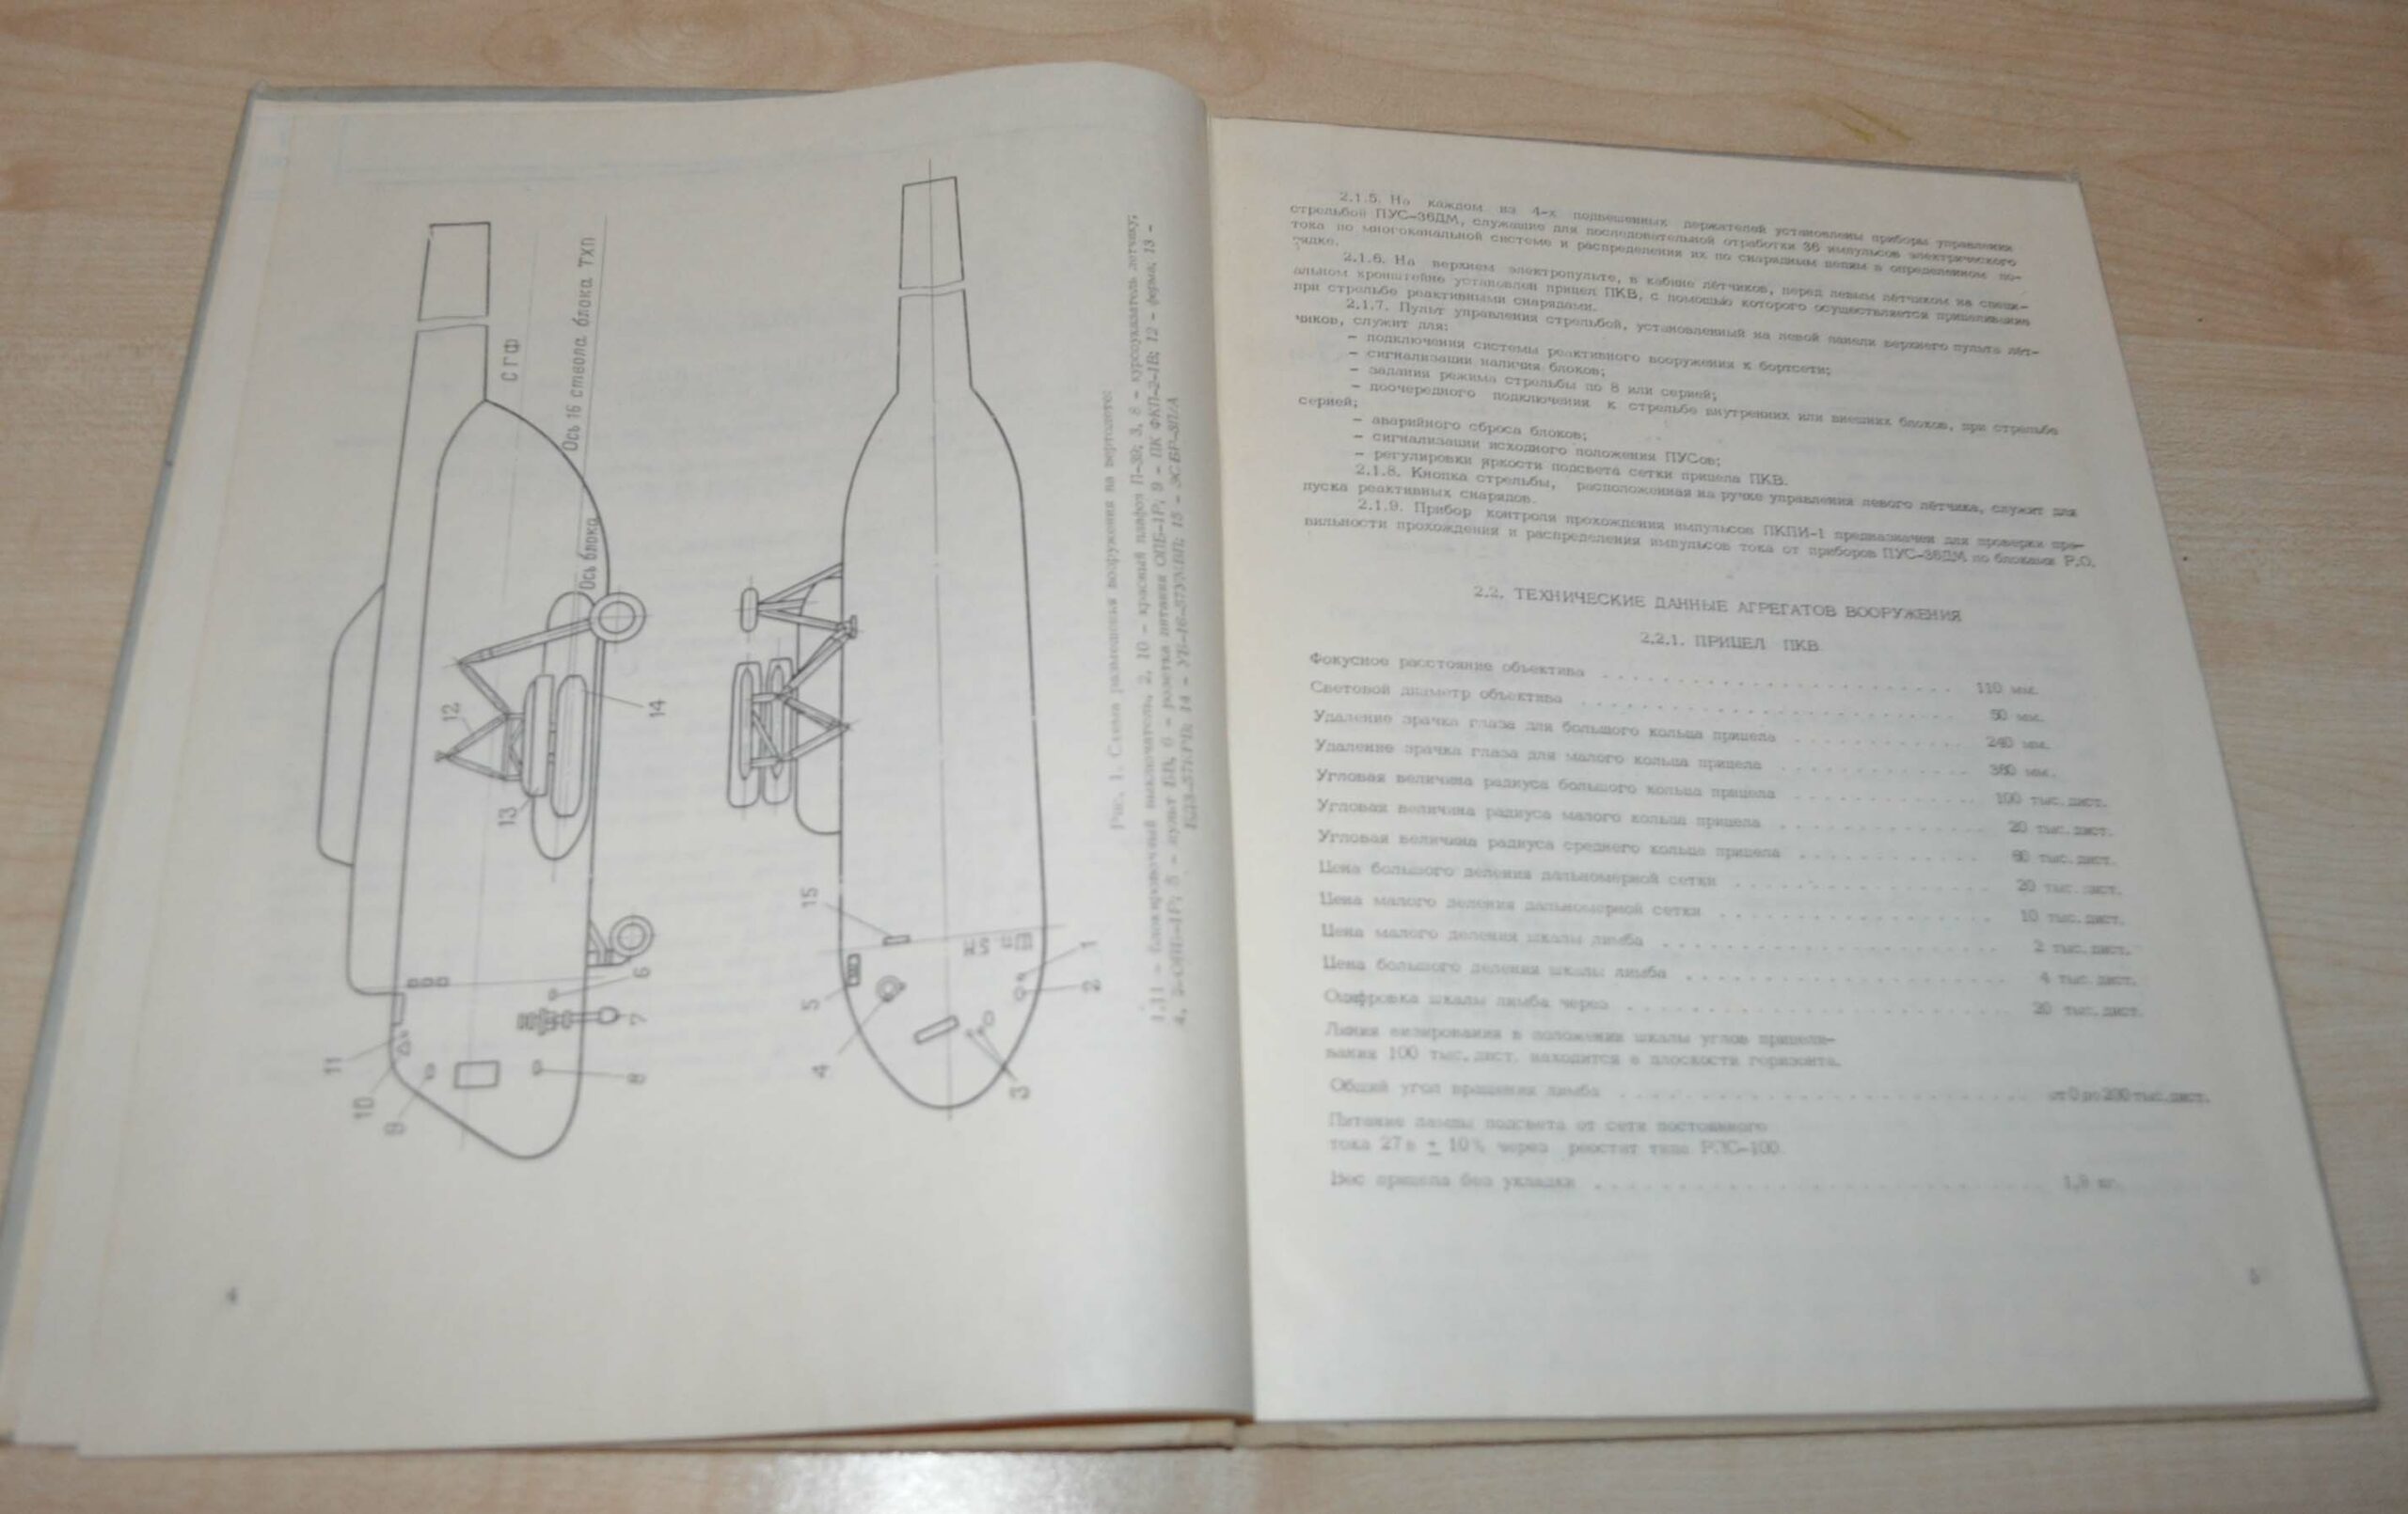 С Г Ф
Ось 16 ствола блока ТхП
Ось блока
12
13
14
11
10
9
6
7
8
15
5
4
1
2
3
Рис. 1. Схема размещения вооружения на вертолете:
10 – красный плафон П-39; 3, 8 – курсоуказатель летчику;
розетка питания ОПБ-1Р; 9 – ПК ФКП-2-1В; 12 – ферма; 13 –
4
2.1.5. На каждом из 4-х подвешенных держателей установлены приборы управления
стрельбой ПУС-36ДМ, служащие для последовательной отработки 36 импульсов электрического
тока по многоканальной системе и распределения их по снарядным цепям в определенном по-
рядке.
2.1.6. На верхнем электропульте, в кабине лётчиков, перед левым лётчиком на специ-
альном кронштейне установлен прицел ПКВ, с помощью которого осуществляется прицеливание
при стрельбе реактивными снарядами.
2.1.7. Пульт управления стрельбой, установленный на левой панели верхнего пульта лёт-
чиков, служит для:
– подключения системы реактивного вооружения к бортсети;
– сигнализации наличия блоков;
– задания режима стрельбы по 8 или серией;
– поочередного подключения к стрельбе внутренних или внешних блоков, при стрельбе
серией;
– аварийного сброса блоков;
– сигнализации исходного положения ПУСов;
– регулировки яркости подсвета сетки прицела ПКВ.
2.1.8. Кнопка стрельбы, расположенная на ручке управления левого лётчика, служит для
пуска реактивных снарядов.
2.1.9. Прибор контроля прохождения импульсов ПКПИ-1 предназначен для проверки пра-
вильности прохождения и распределения импульсов тока от приборов ПУС-36ДМ по блокам Р.О.
2.2. ТЕХНИЧЕСКИЕ ДАННЫЕ АГРЕГАТОВ ВООРУЖЕНИЯ
2.2.1. ПРИЦЕЛ ПКВ
Фокусное расстояние объектива . . . . . . . . . . 110 мм.
Световой диаметр объектива . . . . . . . . . . 50 мм.
Удаление зрачка глаза для большого кольца прицела . . . . . . . . . . 240 мм.
Удаление зрачка глаза для малого кольца прицела . . . . . . . . . . 380 мм.
Угловая величина радиуса большого кольца прицела . . . . . . . . . . 100 тыс.дист.
Угловая величина радиуса малого кольца прицела . . . . . . . . . . 20 тыс.дист.
Угловая величина радиуса среднего кольца прицела . . . . . . . . . . 60 тыс.дист.
Цена большого деления дальномерной сетки . . . . . . . . . . 20 тыс.дист.
Цена малого деления дальномерной сетки . . . . . . . . . . 10 тыс.дист.
Цена малого деления шкалы лимба . . . . . . . . . . 2 тыс.дист.
Цена большого деления шкалы лимба . . . . . . . . . . 4 тыс.дист.
Оцифровка шкалы лимба через . . . . . . . . . . 20 тыс.дист.
Линия визирования в положении шкалы углов прицели-
вания 100 тыс.дист. находится в плоскости горизонта.
Общий угол вращения лимба . . . . . . . . . . от 0 до 200 тыс.дист.
Питание лампы подсвета от сети постоянного
тока 27в ± 10% через реостат типа РЗС-100.
Вес прицела без укладки . . . . . . . . . . 1,9 кг.
5